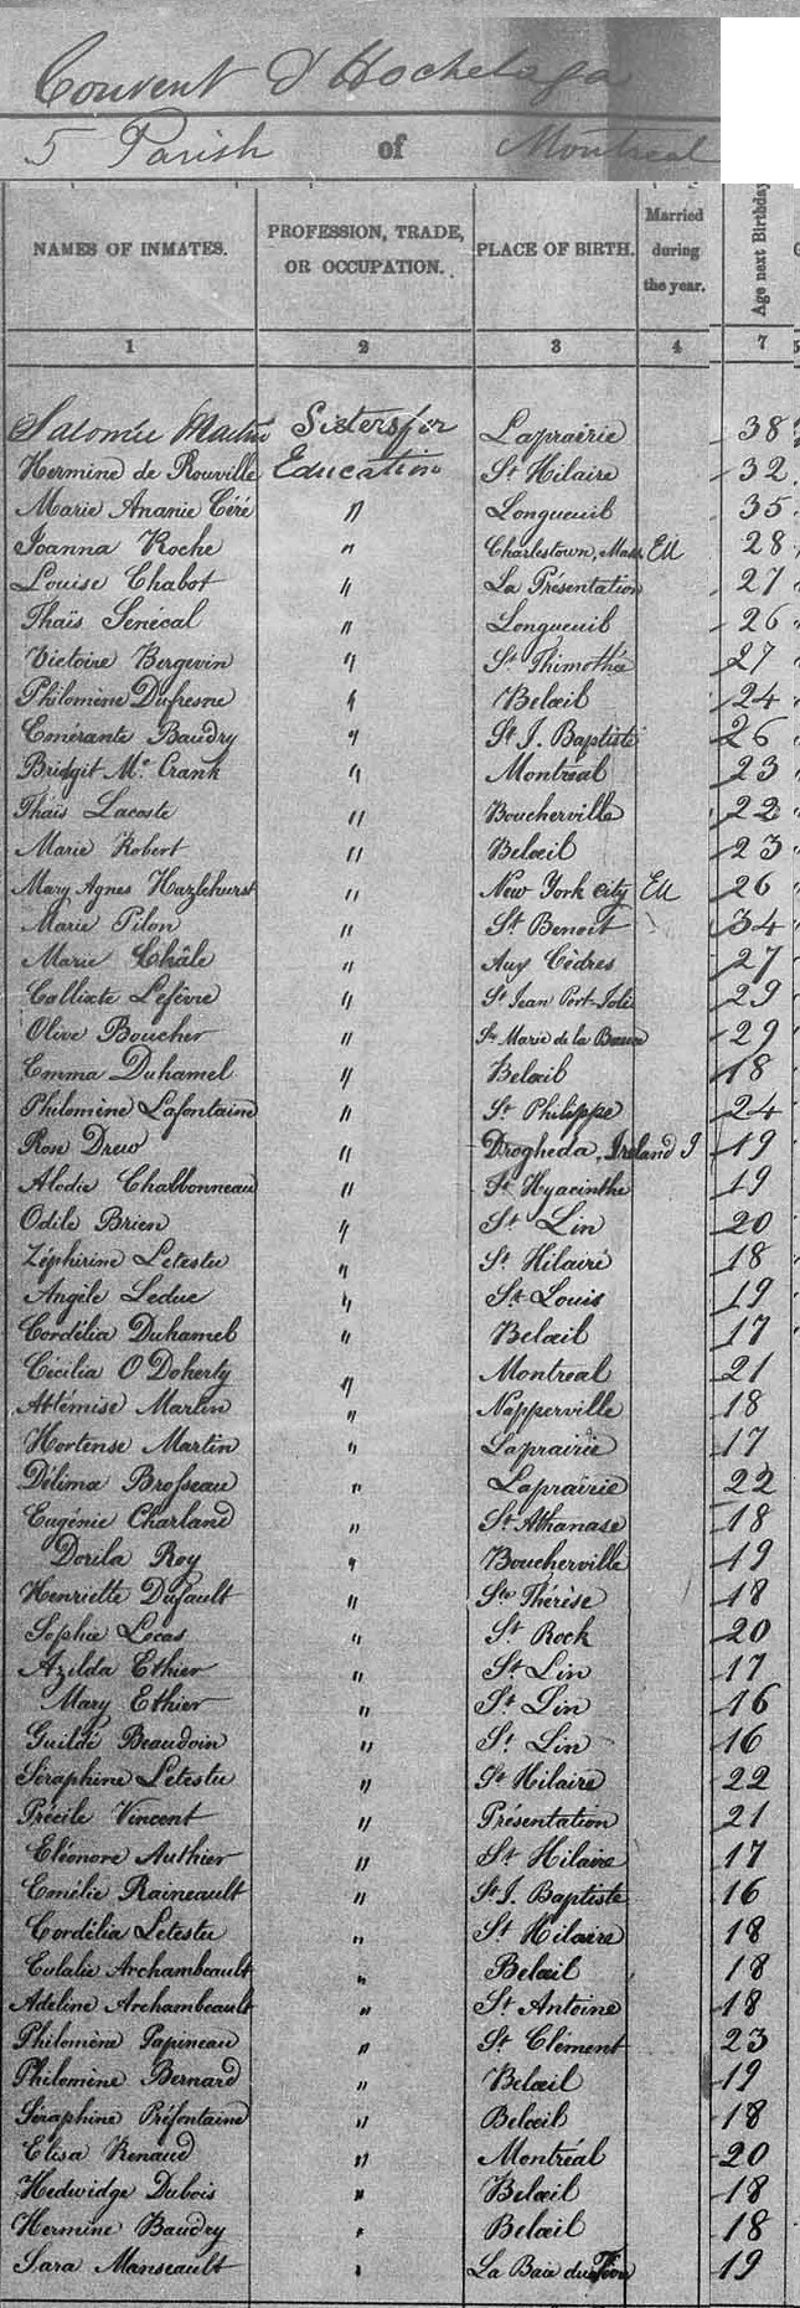 Couvent d'Hochelaga
5 Parish of Montreal
NAMES OF INMATES. PROFESSION, TRADE, OR OCCUPATION. PLACE OF BIRTH. Married during the year. Age next Birthday
1 2 3 4 7
Salomée Martin Sisters for Laprairie 38
Hermine de Rouville Education St Hilaire 32
Marie Ananie Céré " Longueuil 35
Joanna Roche " Charlestown, Mass. EU 28
Louise Chabot " La Présentation 27
Thaïs Senécal " Longueuil 26
Victoire Bergevin " St Thimothée 27
Philomène Dufresne " Belœil 24
Emérante Baudry " St J. Baptiste 26
Bridgit Mc Crank " Montréal 23
Thaïs Lacoste " Boucherville 22
Marie Robert " Belœil 23
Mary Agnes Hazlehurst " New York city EU 26
Marie Pilon " St Benoit 34
Marie Châle " Aux Cèdres 27
Callixte Lefèvre " St Jean Port-Joli 29
Olive Boucher " Ste Marie de la 29
Emma Duhamel " Belœil 18
Philomène Lafontaine " St Philippe 24
Rose Drew " Drogheda, Ireland I 19
Alodie Chabbonneau " St Hyacinthe 19
Odile Brien " St Lin 20
Zéphirine Letestu " St Hilaire 18
Angèle Leduc " St Louis 19
Cordélia Duhamel " Belœil 17
Cécilia O Doherty " Montreal 21
Attémise Martin " Napperville 18
Hortense Martin " Laprairie 17
Délima Brosseau " Laprairie 22
Eugénie Charland " St Athanase 18
Dorila Roy " Boucherville 19
Henriette Dufault " Ste Thérèse 18
Sophie Locas " St Rock 20
Azilda Ethier " St Lin 17
Mary Ethier " St Lin 16
Guildé Beaudoin " St Lin 16
Séraphine Letestu " St Hilaire 22
Précile Vincent " Présentation 21
Eléonore Authier " St Hilaire 17
Emélie Raineault " St J. Baptiste 16
Cordélia Letestu " St Hilaire 18
Eulalie Archambeault " Belœil 18
Adeline Archambeault " St Antoine 18
Philomène Papineau " St Clément 23
Philomène Bernard " Belœil 19
Séraphine Préfontaine " Belœil 18
Elisa Renaud " Montréal 20
Hedwidge Dubois " Belœil 18
Hermine Baudry " Belœil 18
Sara Manseault " La Baie du 19